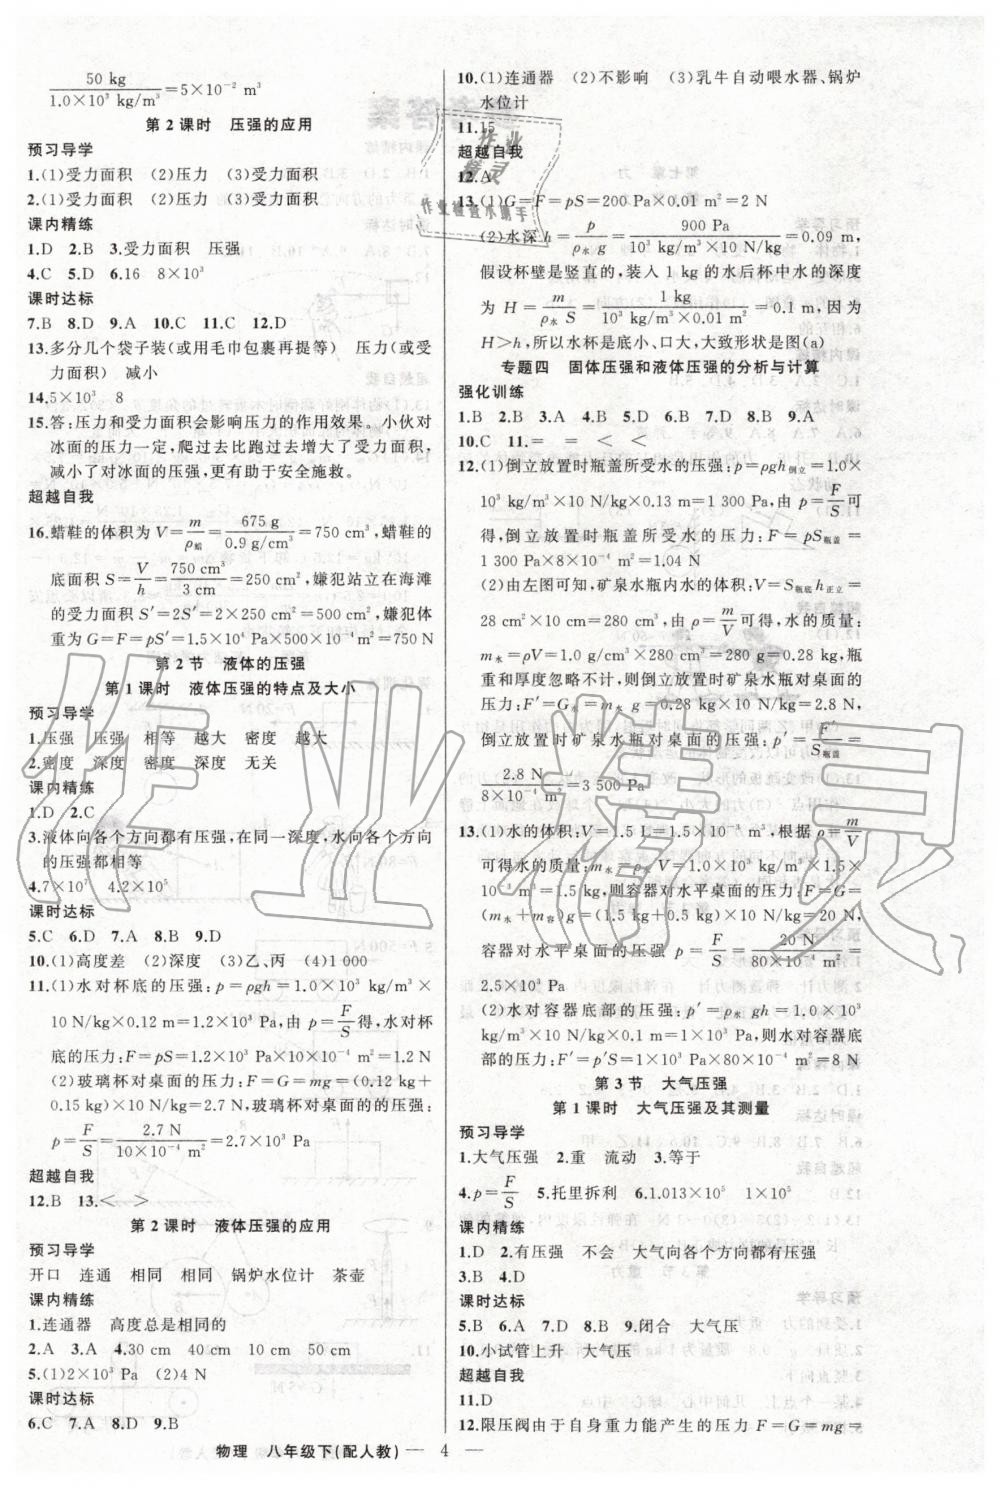 50 kg / 1.0×10³ kg/m³ =5×10⁻² m³
第2课时 压强的应用
预习导学
1.(1)受力面积 (2)压力 (3)受力面积
2.(1)受力面积 (2)压力 (3)受力面积
课内精练
1.D 2.B 3.受力面积 压强
4.C 5.D 6.16 8×10³
课时达标
7.B 8.D 9.A 10.C 11.C 12.D
13.多分几个袋子装(或用毛巾包裹再提等) 压力(或受
力面积) 减小
14.5×10³ 8
15.答:压力和受力面积会影响压力的作用效果。小伙对
冰面的压力一定,爬过去比跑过去增大了受力面积,
减小了对冰面的压强,更有助于安全施救。
超越自我
16.蜡鞋的体积为V=m/ρ蜡=675 g/0.9 g/cm³=750 cm³,蜡鞋的
底面积S=V/h=750 cm³/3 cm=250 cm²,嫌犯站立在海滩
的受力面积S′=2S′=2×250 cm²=500 cm²,嫌犯体
重为G=F=pS′=1.5×10⁴ Pa×500×10⁻⁴ m²=750 N
第2节 液体的压强
第1课时 液体压强的特点及大小
预习导学
1.压强 压强 相等 越大 密度 越大
2.密度 深度 密度 深度 无关
课内精练
1.D 2.C
3.液体向各个方向都有压强,在同一深度,水向各个方向
的压强都相等
4.7×10⁷ 4.2×10⁵
课时达标
5.C 6.D 7.A 8.B 9.D
10.(1)高度差 (2)深度 (3)乙、丙 (4)1 000
11.(1)水对杯底的压强:p=ρgh=1.0×10³ kg/m³×
10 N/kg×0.12 m=1.2×10³ Pa,由p=F/S得,水对杯
底的压力:F=pS=1.2×10³ Pa×10×10⁻⁴ m²=1.2 N
(2)玻璃杯对桌面的压力:F=G=mg=(0.12 kg+
0.15 kg)×10 N/kg=2.7 N,玻璃杯对桌面的压强:
p=F/S=2.7 N/10×10⁻⁴ m²=2.7×10³ Pa
超越自我
12.B 13.< >
第2课时 液体压强的应用
预习导学
开口 连通 相同 相同 锅炉水位计 茶壶
课内精练
1.连通器 高度总是相同的
2.A 3.A 4.30 cm 40 cm 10 cm 50 cm
5.(1)2×10³ Pa (2)4 N
课时达标
6.C 7.A 8.D 9.B
10.(1)连通器 (2)不影响 (3)乳牛自动喂水器、锅炉
水位计
11.15
超越自我
12.A
13.(1)G=F=pS=200 Pa×0.01 m²=2 N
(2)水深h=p/ρ水g=900 Pa/10³ kg/m³×10 N/kg=0.09 m,
假设杯壁是竖直的,装入1 kg的水后杯中水的深度
为H=m/ρ水S=1 kg/10³ kg/m³×0.01 m²=0.1 m,因为
H>h,所以水杯是底小、口大,大致形状是图(a)
专题四 固体压强和液体压强的分析与计算
强化训练
1.B 2.B 3.A 4.B 5.D 6.B 7.D 8.B 9.A
10.C 11.= = < <
12.(1)倒立放置时瓶盖所受水的压强:p=ρgh倒立=1.0×
10³ kg/m³×10 N/kg×0.13 m=1 300 Pa,由p=F/S可
得,倒立放置时瓶盖所受水的压力:F=pS瓶盖=
1 300 Pa×8×10⁻⁴ m²=1.04 N
(2)由左图可知,矿泉水瓶内水的体积:V=S瓶底h正立=
28 cm²×10 cm=280 cm³,由ρ=m/V可得,水的质量:
m水=ρV=1.0 g/cm³×280 cm³=280 g=0.28 kg,瓶
重和厚度忽略不计,则倒立放置时矿泉水瓶对桌面的
压力:F′=G水=m水g=0.28 kg×10 N/kg=2.8 N,
倒立放置时矿泉水瓶对桌面的压强:p′=F′/S瓶盖=
2.8 N/8×10⁻⁴ m²=3 500 Pa
13.(1)水的体积:V=1.5 L=1.5×10⁻³ m³,根据ρ=m/V
可得水的质量:m水=ρV=1.0×10³ kg/m³×1.5×
10⁻³ m³=1.5 kg,则容器对水平桌面的压力:F=G=
(m水+m容)g=(1.5 kg+0.5 kg)×10 N/kg=20 N,
容器对水平桌面的压强p=F/S=20 N/80×10⁻⁴ m²=
2.5×10³ Pa
(2)水对容器底部的压强:p′=ρ水gh=1.0×10³
kg/m³×10 N/kg×0.1 m=1×10³ Pa,则水对容器底
部的压力:F′=p′S=1×10³ Pa×80×10⁻⁴ m²=8 N
第3节 大气压强
第1课时 大气压强及其测量
预习导学
1.大气压强 2.重 流动 3.等于
4.p=F/S 5.托里拆利 6.1.013×10⁵ 1×10⁵
课内精练
1.D 2.有压强 不会 大气向各个方向都有压强
3.B 4.D
课时达标
5.B 6.A 7.D 8.B 9.闭合 大气压
10.小试管上升 大气压
超越自我
11.D
12.限压阀由于自身重力能产生的压力F=G=mg=
物理 八年级下(配人教) — 4 —
作业精灵